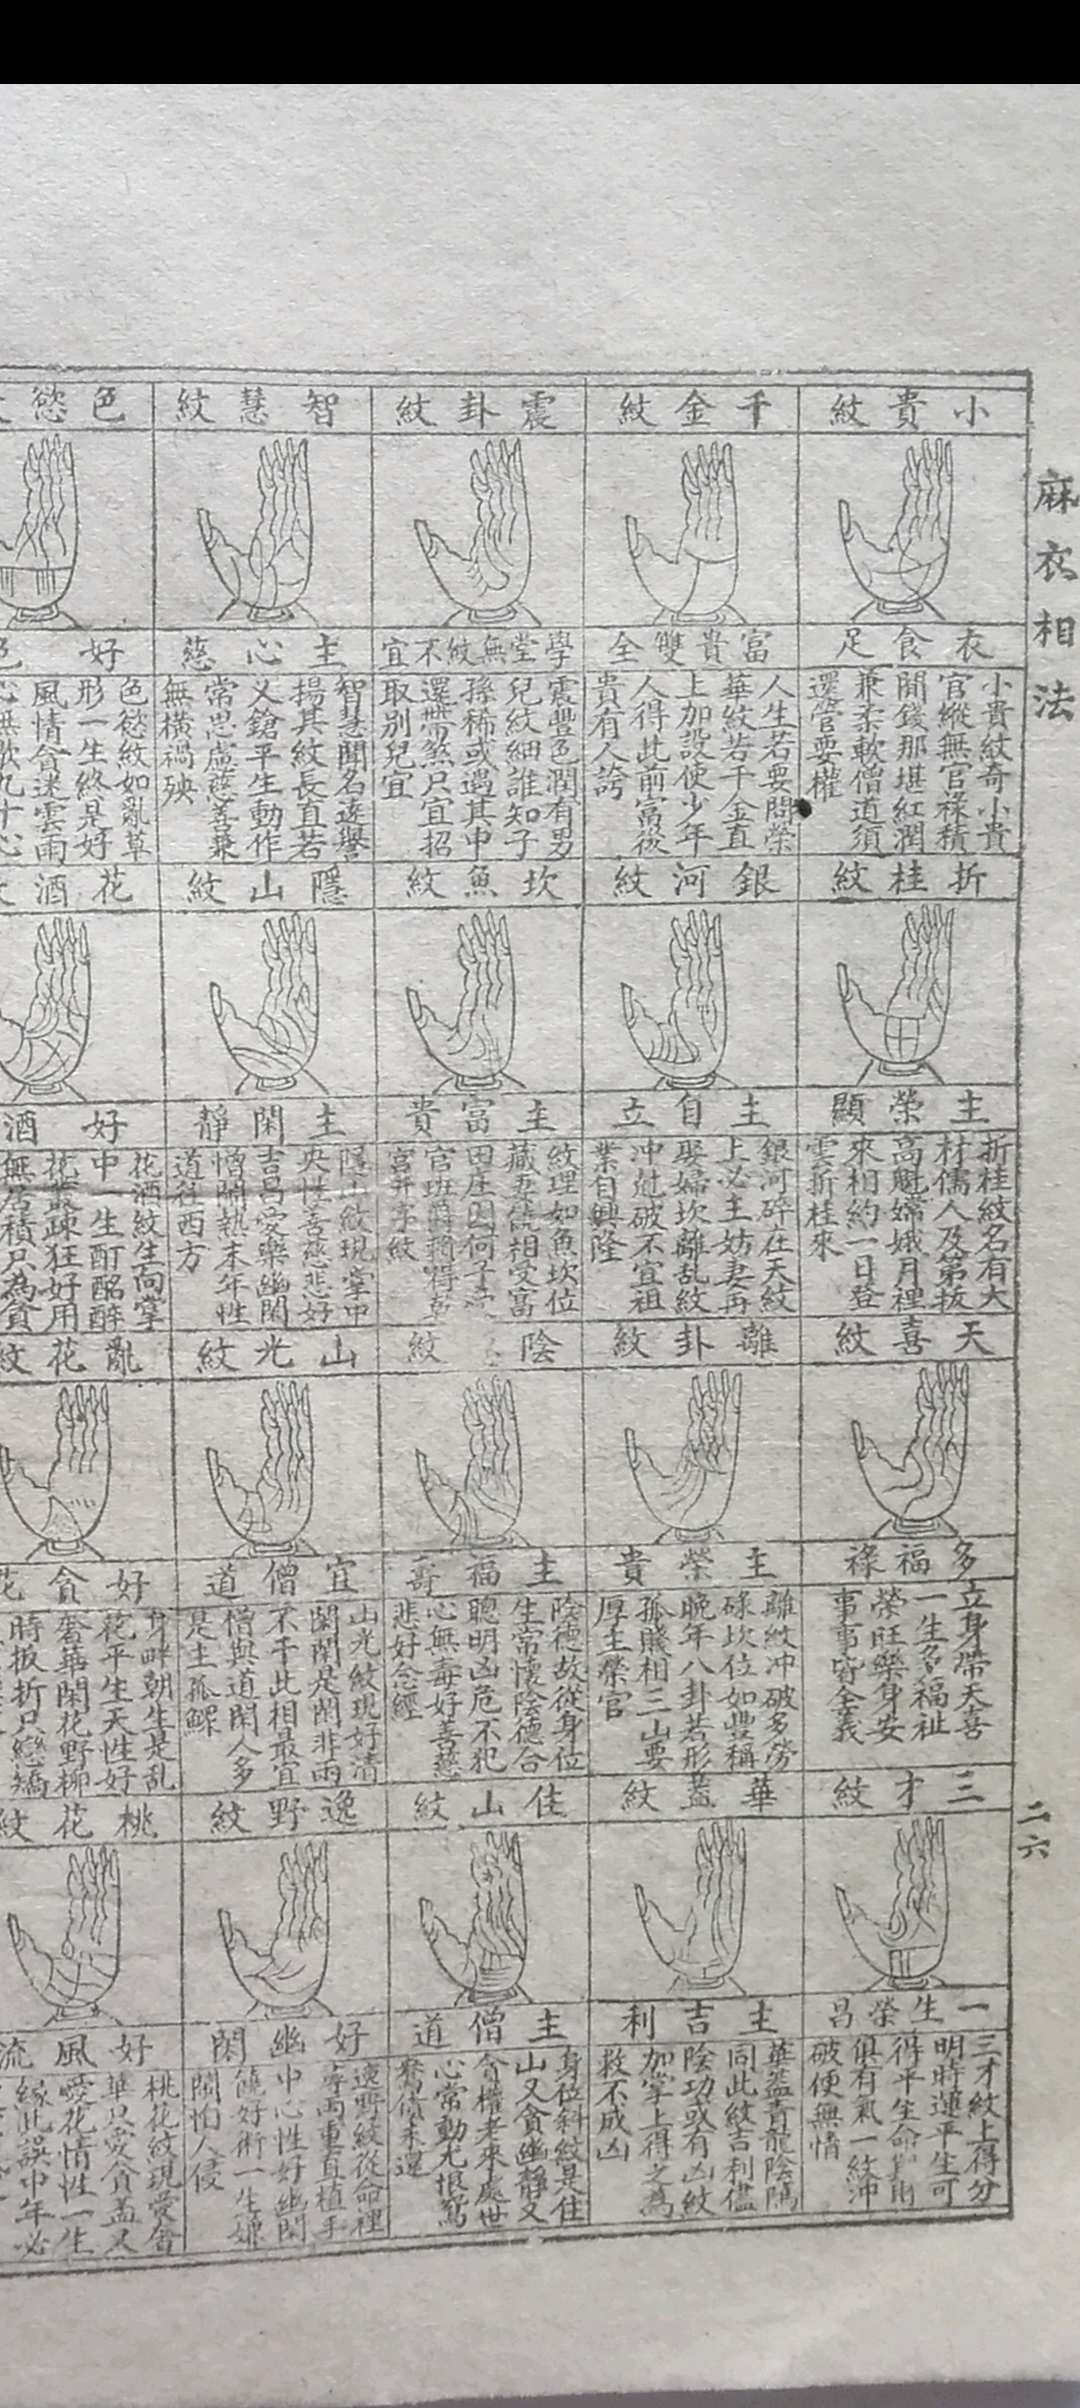 麻衣相法
二六
小貴紋
衣食足
小貴紋奇小貴
官縱無官祿積
閒錢那堪紅潤
兼柔軟僧道須
還管要權
千金紋
富貴雙全
人生若要問榮
華紋若千金直
上加設使少年
人得此前富後
貴有人誇
震卦紋
學堂無紋不宜
震豐色潤有男
兒紋細誰知子
孫稀或遇其中
還帶煞只宜招
取別兒宜
智慧紋
主心慈
智慧聞名遠譽
揚其紋長直若
乂鎗平生動作
常思慮慈善兼
無橫禍殃
色慾
好色
色慾紋如亂草
形一生終是好
風情貪迷雲雨
心無歇九十心
折桂紋
主榮顯
折桂紋名有大
材儒人及第拔
高魁嫦娥月裡
來相約一日登
雲折桂來
銀河紋
主自立
銀河碎在天紋
上必主妨妻再
娶婦坎離乱紋
冲尅破不宜祖
業自興隆
坎魚紋
主富貴
紋理如魚坎位
藏妻
相受富
田庄因何子
官班爵
得
宮井字紋
隱山紋
主閑靜
隱山紋現掌中
央性善慈悲好
吉昌愛樂幽閑
憎鬧熱末年性
道往西方
花酒
好酒
花酒紋生向掌
中一生酊酩醉
花叢疎狂好用
無居積只為貪
天喜紋
多福祿
立身帶天喜
一生多福祉
榮旺樂身安
事事皆全義
離卦紋
主榮貴
離紋冲破多勞
碌坎位如豐稱
晚年八卦若形
孤賤相三山要
厚主榮官
陰
紋
主福壽
陰德故從身位
生常懷陰德合
聰明凶危不犯
心無毒好善慈
悲好念經
山光紋
宜僧道
山光紋現好清
閑閑是閑非兩
不干此相最宜
僧與道閑人多
是主孤鰥
亂花紋
好貪花
身畔朝生是乱
花平生天性好
奢華閑花野柳
時扳折只戀嬌
三才紋
一生榮昌
三才紋上得分
明時運平生可
得平生命
俱有氣一紋冲
破便無情
華蓋紋
主吉利
華蓋青龍陰隲
同此紋吉利儘
陰功或有凶紋
加掌上得之為
救不成凶
住山紋
主僧道
身位斜紋是住
山又貪幽靜又
貪權老來處世
心常動尤恨鴛
鴦債未還
逸野紋
好幽閑
逸野紋從命裡
尋兩重直植手
中心性好幽閑
饒好術一生嫌
鬧怕人侵
桃花紋
好風流
桃花紋現愛奢
華只愛貪盃又
愛花情性一生
緣此誤中年必